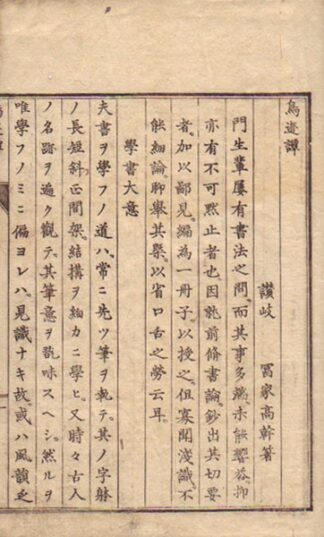 鳥迹譚
讃岐　冨家高幹著
門生輩屢有書法之問而其事多端未能響答抑
亦有不可默止者也因就前脩書論鈔出其切要
者加以鄙見編為一冊子以授之但寡聞淺識不
能細論聊舉其槩以省口舌之勞云耳
學書大意
夫書ヲ學フノ道ハ常ニ先ツ筆ヲ執テ其ノ字躰
ノ長短斜正間架結構ヲ細カニ學ヒ又時々古人
ノ名跡ヲ遍ク觀テ其筆意ヲ翫味スヘシ然ルヲ
唯學フノミニ偏ヨレハ見識ナキ故或ハ風韻乏